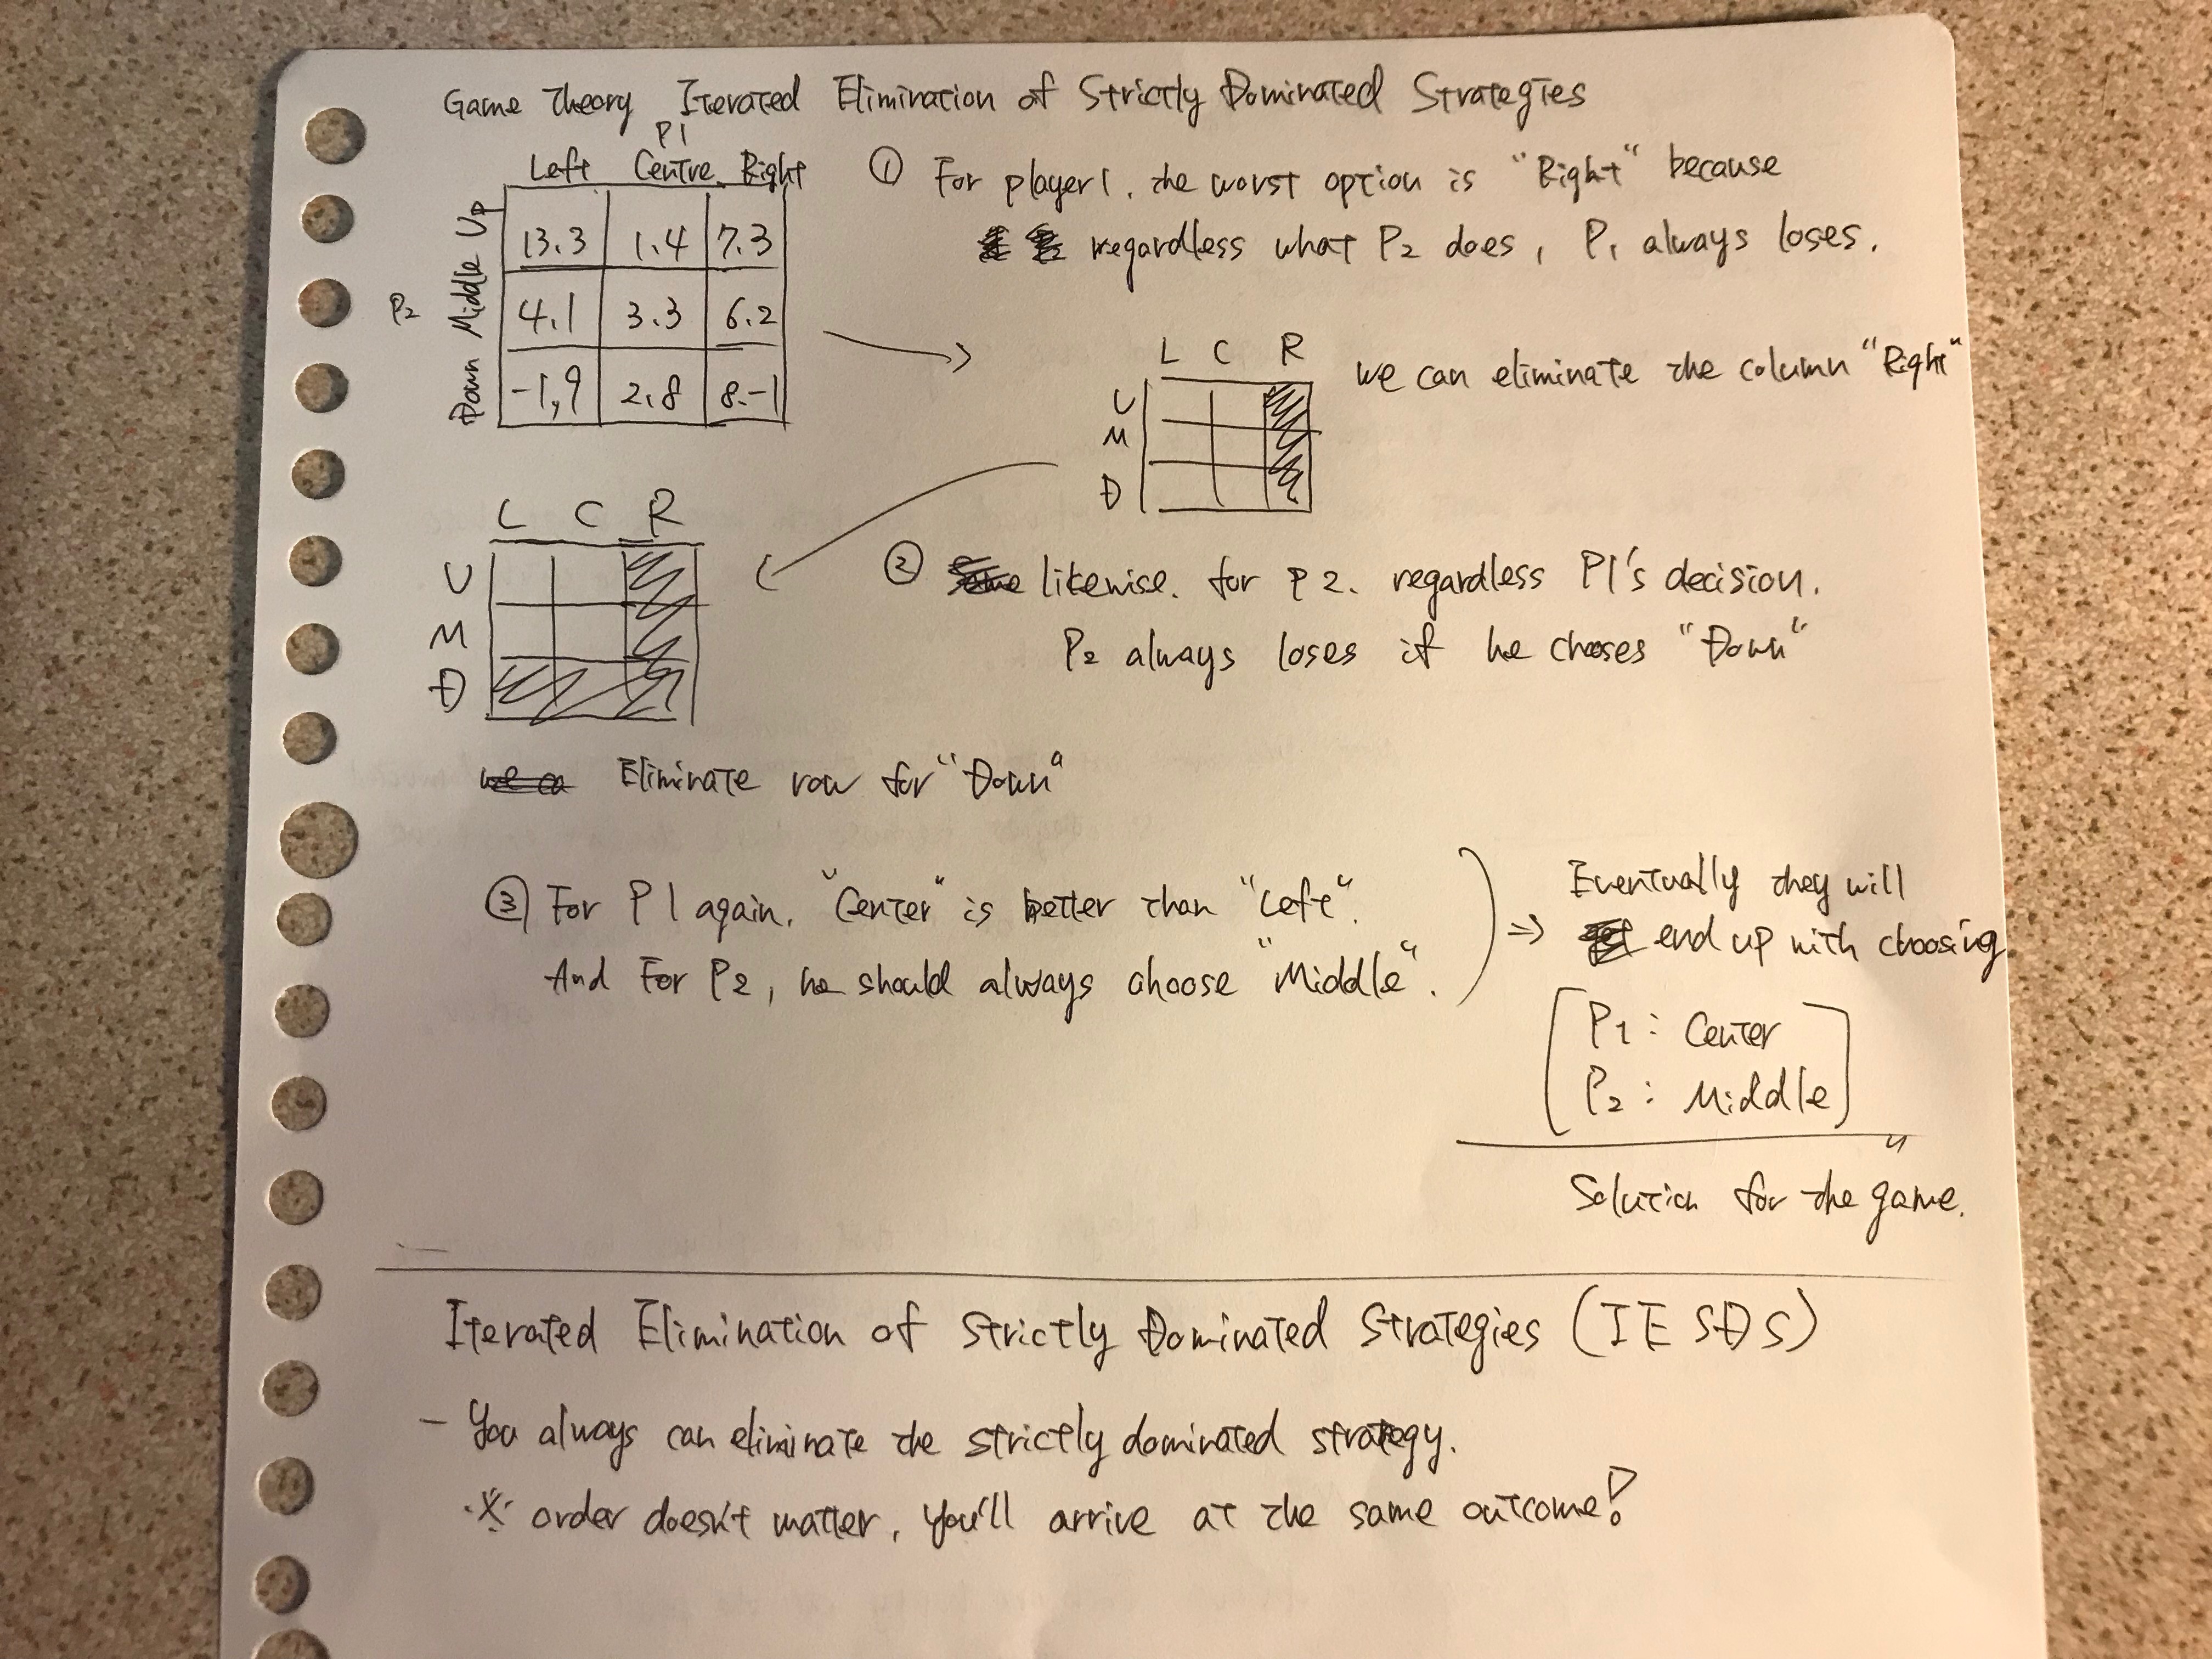 Game Theory Iterated Elimination of Strictly Dominated Strategies
P1
Left Centre Right
Up 13.3 1.4 7.3
P2 Middle 4.1 3.3 6.2
Down -1,9 2.8 8.-1
① For player 1. the worst option is "Right" because
regardless what P2 does, P1 always loses.
L C R
U
M
D
we can eliminate the column "Right"
L C R
U
M
D
② likewise. for P2. regardless P1's decision.
P2 always loses if he chooses "Down"
Eliminate row for "Down"
③ For P1 again. "Center" is better than "Left".
And For P2, he should always choose "Middle".
⇒ Eventually they will
end up with choosing
P1 : Center
P2 : Middle
Solution for the game.
Iterated Elimination of Strictly Dominated Strategies (IESDS)
- You always can eliminate the strictly dominated strategy.
※ order doesn't matter, you'll arrive at the same outcome!